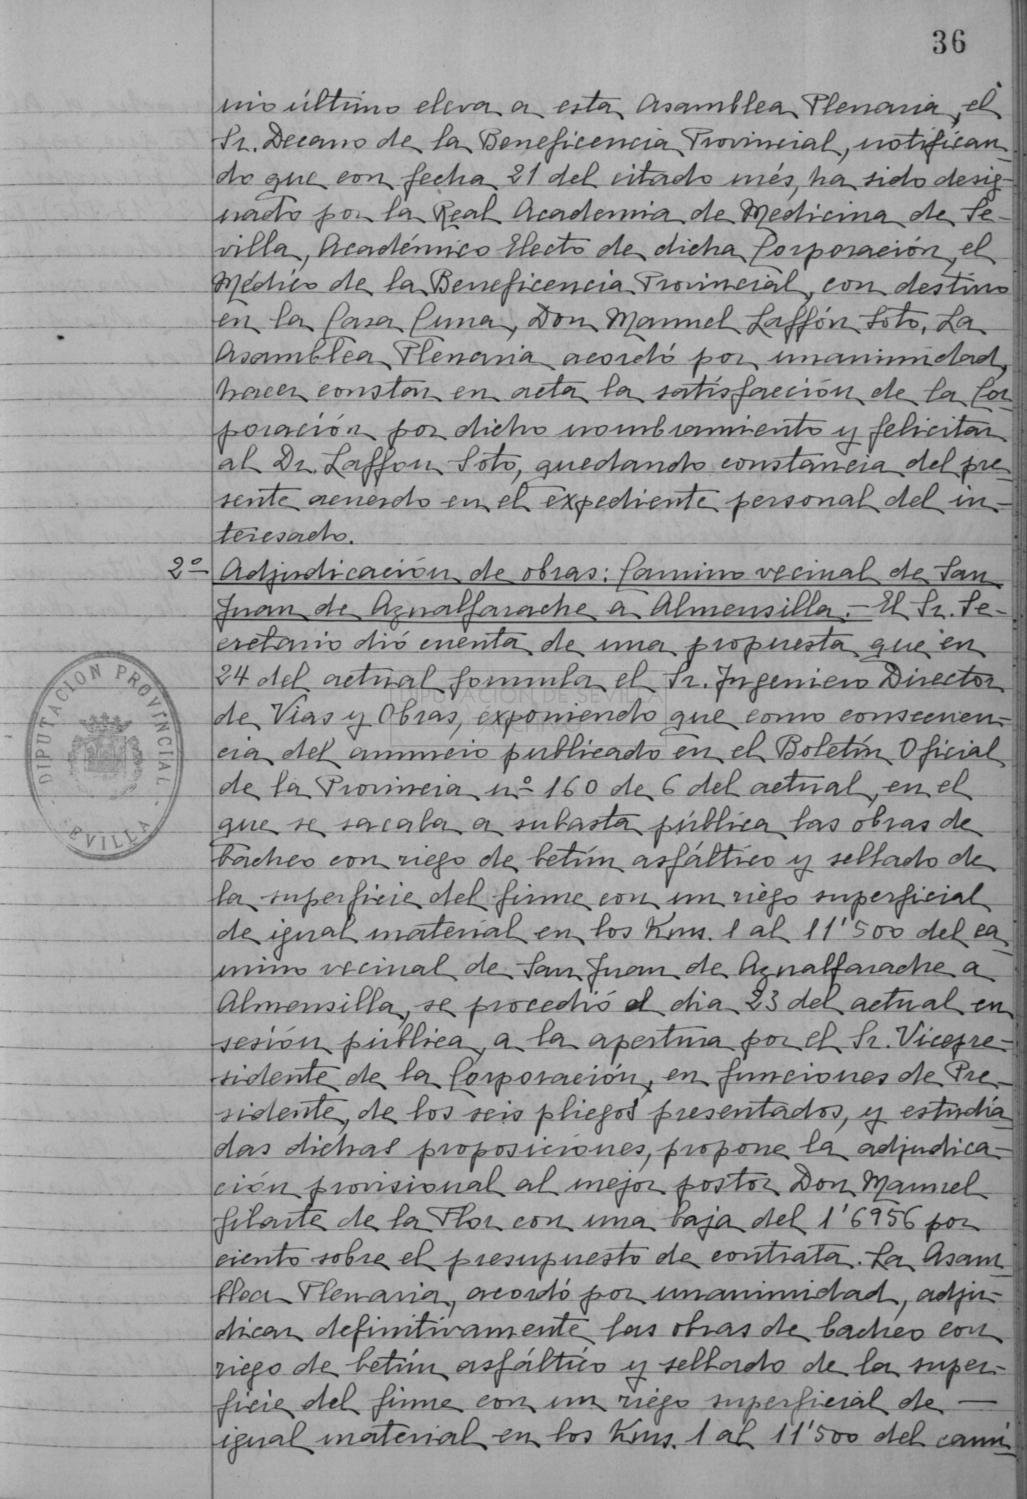 36
nio último eleva a esta Asamblea Plenaria, el
Sr. Decano de la Beneficencia Provincial, notifican-
do que con fecha 21 del citado més, ha sido desig-
nado por la Real Academia de Medicina de Se-
villa, Académico Electo de dicha Corporación, el
Médico de la Beneficencia Provincial, con destino
en la Casa Cuna, Don Manuel Laffón Soto. La
Asamblea Plenaria acordó por unanimidad,
hacer constar en acta la satisfacción de la Cor
poración por dicho nombramiento y felicitar
al Dr. Laffon Soto, quedando constancia del pre-
sente acuerdo en el expediente personal del in-
teresado.
2º Adjudicación de obras: Camino vecinal de San
Juan de Aznalfarache a Almensilla.- El Sr. Se-
cretario dió cuenta de una propuesta que en
24 del actual formula el Sr. Ingeniero Director
de Vias y Obras, exponiendo que como consecuen-
cia del anuncio publicado en el Boletín Oficial
de la Provincia nº 160 de 6 del actual, en el
que se sacaba a subasta pública las obras de
bacheo con riego de betún asfáltico y sellado de
la superficie del firme con un riego superficial
de igual material en los Kms. 1 al 11'500 del ca
mino vecinal de San Juan de Aznalfarache a
Almensilla, se procedió el dia 23 del actual en
sesión pública, a la apertura por el Sr. Vicepre-
sidente de la Corporación, en funciones de Pre-
sidente, de los seis pliegos presentados, y estudia
das dichas proposiciones, propone la adjudica-
ción provisional al mejor postor Don Manuel
de la Flor con una baja del 1'6956 por
ciento sobre el presupuesto de contrata. La Asam
blea Plenaria, acordó por unanimidad, adju-
dicar definitivamente las obras de bacheo con
riego de betún asfáltico y sellado de la super-
ficie del firme con un riego superficial de —
igual material en los Kms. 1 al 11'500 del cami-
DIPUTACION PROVINCIAL
SEVILLA
DIPUTACION DE SEVILLA
ARCHIVO